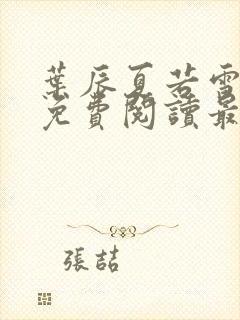 葉辰夏若雪
免費閱讀最
張喆